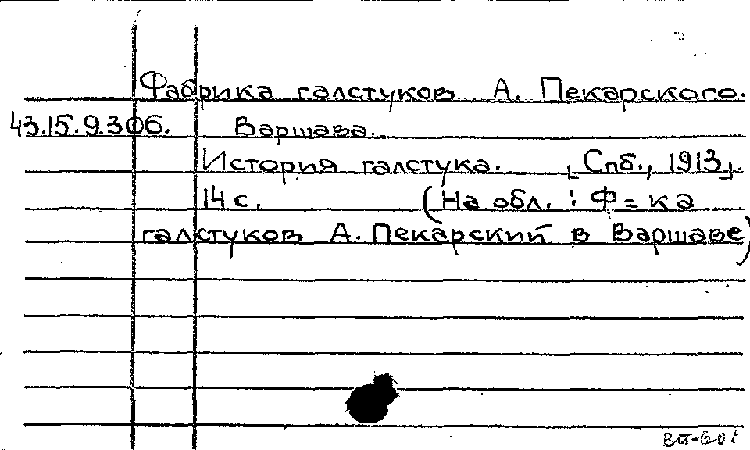 Фабрика галстуков А. Пекарского.
43.15.9.306. Варшава.
История галстука. [Спб., 1913]
14 с. (На обл.: Ф=ка
галстуков А. Пекарский в Варшаве)